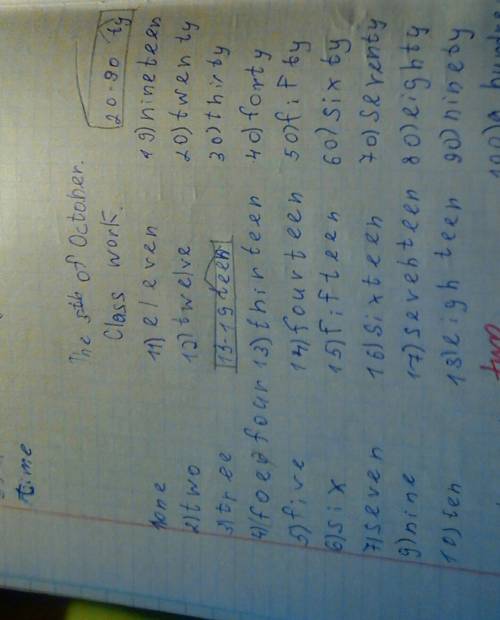 time
The 5th of October.
Class work. 20-90 ty
1one 11) eleven 19) nineteen
2) two 12) twelve 20) twenty
3) tree 13-19 teen 30) thirty
4) four 13) thirteen 40) forty
5) five 14) fourteen 50) fifty
6) six 15) fifteen 60) sixty
7) seven 16) sixteen 70) seventy
9) nine 17) seventeen 80) eighty
10) ten 18) eighteen 90) ninety
100) a